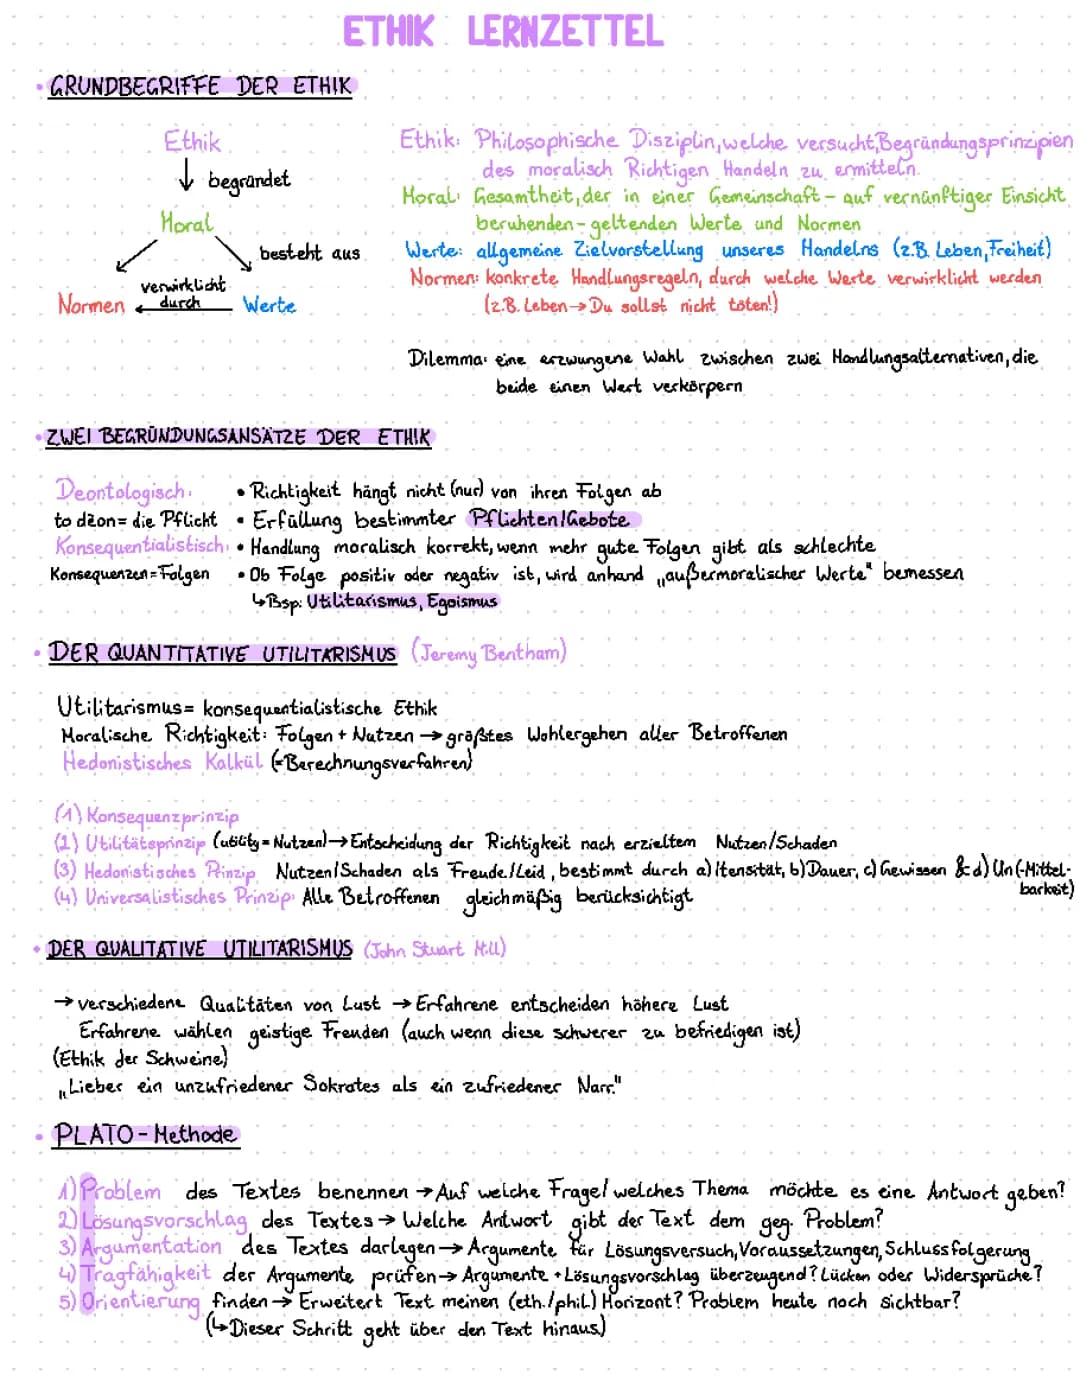 ETHIK LERNZETTEL
• GRUNDBEGRIFFE DER ETHIK
Ethik
begründet
Moral
besteht aus
verwirklicht
durch
Normen
Werte
Ethik: Philosophische Disziplin, welche versucht, Begründungsprinzipien
des moralisch Richtigen Handeln zu ermitteln.
Moral: Gesamtheit, der in einer Gemeinschaft - auf vernünftiger Einsicht
beruhenden - geltenden Werte und Normen
Werte: allgemeine Zielvorstellung unseres Handelns (z.B. Leben, Freiheit)
Normen: konkrete Handlungsregeln, durch welche Werte verwirklicht werden
(z.B. Leben → Du sollst nicht töten!)
Dilemma: eine erzwungene Wahl zwischen zwei Handlungsalternativen, die
beide einen Wert verkörpern
• ZWEI BEGRÜNDUNGSANSÄTZE DER ETHIK
Deontologisch: • Richtigkeit hängt nicht (nur) von ihren Folgen ab
to déon = die Pflicht • Erfüllung bestimmter Pflichten/Gebote
Konsequentialistisch: • Handlung moralisch korrekt, wenn mehr gute Folgen gibt als schlechte
Konsequenzen = Folgen • Ob Folge positiv oder negativ ist, wird anhand „außermoralischer Werte" bemessen
↳ Bsp: Utilitarismus, Egoismus
• DER QUANTITATIVE UTILITARISMUS (Jeremy Bentham)
Utilitarismus = konsequentialistische Ethik
Moralische Richtigkeit: Folgen + Nutzen → größtes Wohlergehen aller Betroffenen
Hedonistisches Kalkül (= Berechnungsverfahren)
(1) Konsequenzprinzip
(2) Utilitätsprinzip (utility = Nutzen) → Entscheidung der Richtigkeit nach erzieltem Nutzen/Schaden
(3) Hedonistisches Prinzip Nutzen/Schaden als Freude/Leid, bestimmt durch a) Itensität, b) Dauer, c) Gewissen & d) Un(-Mittel-
barkeit)
(4) Universalistisches Prinzip: Alle Betroffenen gleichmäßig berücksichtigt
• DER QUALITATIVE UTILITARISMUS (John Stuart Mill)
→ verschiedene Qualitäten von Lust → Erfahrene entscheiden höhere Lust
Erfahrene wählen geistige Freuden (auch wenn diese schwerer zu befriedigen ist)
(Ethik der Schweine)
„Lieber ein unzufriedener Sokrates als ein zufriedener Narr."
• PLATO - Methode
1) Problem des Textes benennen → Auf welche Frage/welches Thema möchte es eine Antwort geben?
2) Lösungsvorschlag des Textes → Welche Antwort gibt der Text dem geg. Problem?
3) Argumentation des Textes darlegen → Argumente für Lösungsversuch, Voraussetzungen, Schlussfolgerung
4) Tragfähigkeit der Argumente prüfen → Argumente + Lösungsvorschlag überzeugend? Lücken oder Widersprüche?
5) Orientierung finden → Erweitert Text meinen (eth./phil.) Horizont? Problem heute noch sichtbar?
(↳ Dieser Schritt geht über den Text hinaus)